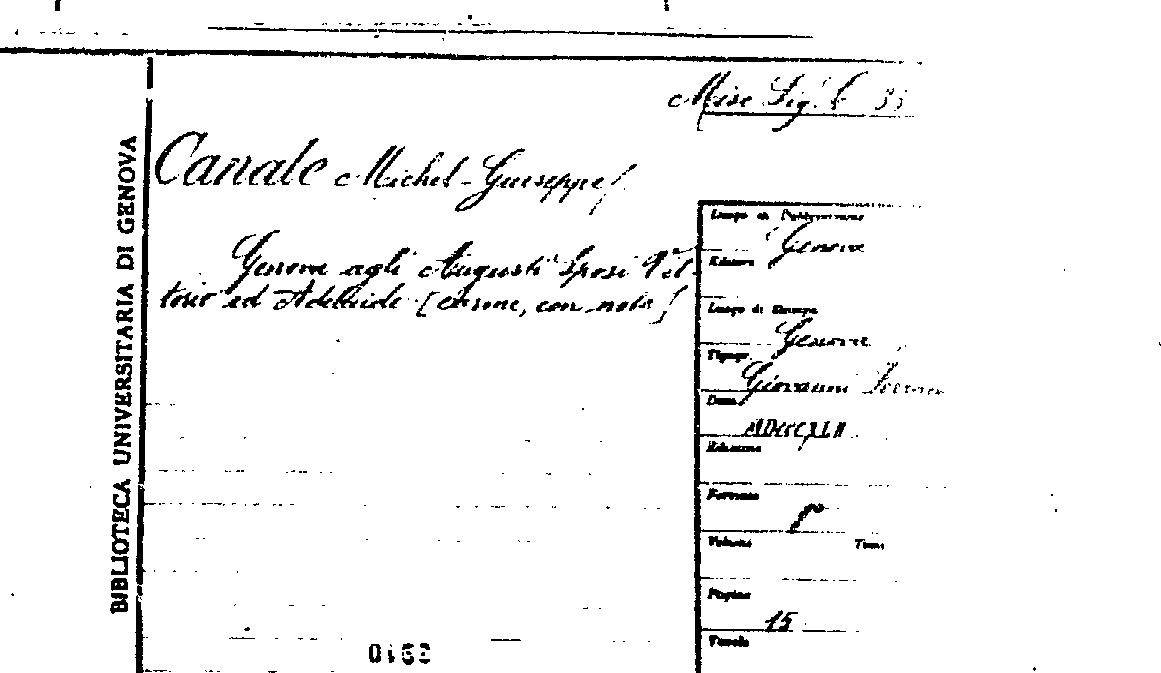 Misc Lig. b 33
BIBLIOTECA UNIVERSITARIA DI GENOVA
Canale Michel-Giuseppe
Genova agli Augusti Sposi Vit-
torio ed Adelaide [carme, con note]
Luogo di Pubblicazione
Genova
Editore
Luogo di Stampa
Genova
Tipogr.
Giovanni
Data
MDCCCXLII
Edizione
Formato
8°
Volume Tomi
Pagine
15
Tavole